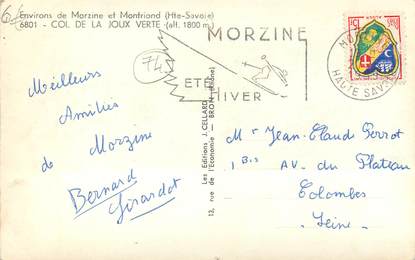 Environs de Morzine et Montriond (Hte-Savoie)
6801 - COL DE LA JOUX VERTE (alt. 1800 m.)
74
MORZINE
ETE
HIVER
HAUTE SAVOIE
Meilleurs
Amitiés
de Morzine
Bernard
Girardot
Les Editions J. CELLARD
13, rue de l'Economie — BRON (Rhône)
Mr Jean-Claud Perrot
1 Bis AV. du Plateau
Colombes
Seine